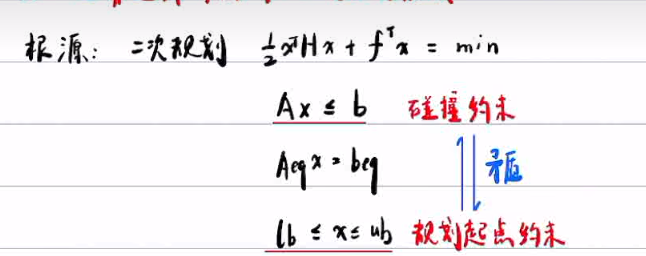 根源: 二次规划 ½xᵀHx + fᵀx = min
Ax ≤ b 碰撞约束
Aeq x = beq 矛盾
lb ≤ x ≤ ub 规划起点约束